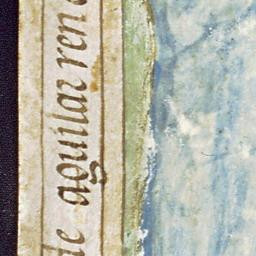 de aguilar ren